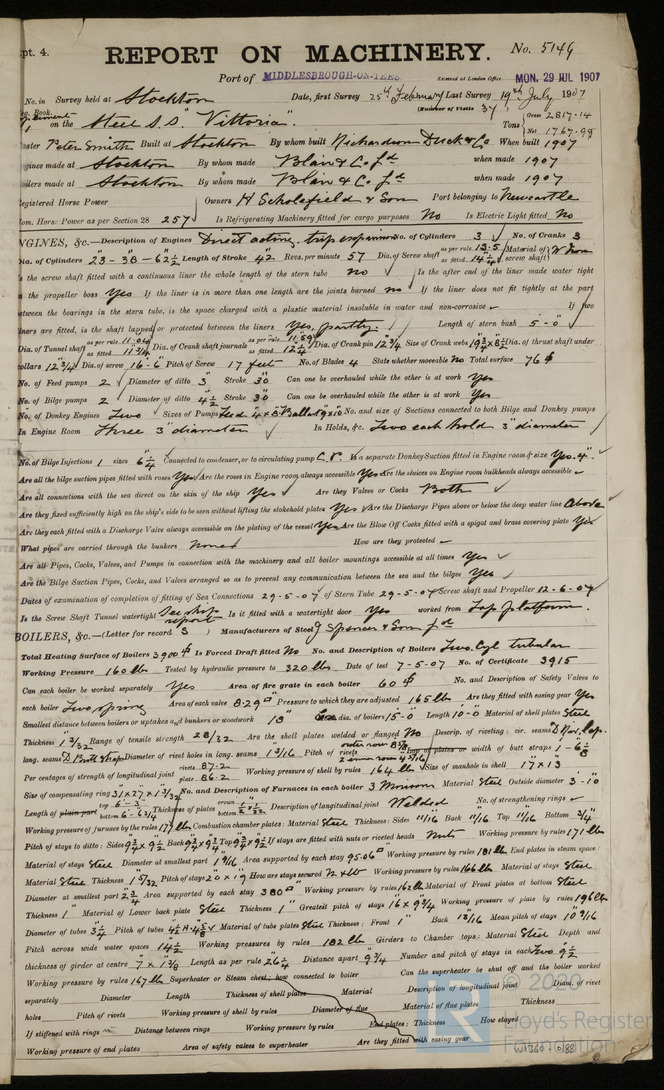 pt. 4.
REPORT ON MACHINERY. No. 5149
Port of MIDDLESBROUGH-ON-TEES Received at London Office MON. 29 JUL 1907
No. in Survey held at Stockton Date, first Survey 25th February Last Survey 19th July 1907
(Number of Visits 37)
on the Steel S.S. "Vittoria". Tons Gross 2817.14 Net 1767.99
Master Peter Smith Built at Stockton By whom built Richardson Duck & Co When built 1907
Engines made at Stockton By whom made Blair & Co Ld when made 1907
Boilers made at Stockton By whom made Blair & Co Ld when made 1907
Registered Horse Power Owners H Scholefield & Son Port belonging to Newcastle
Nom. Horse Power as per Section 28 257 Is Refrigerating Machinery fitted for cargo purposes No Is Electric Light fitted No
ENGINES, &c.—Description of Engines Direct acting, trip expansion No. of Cylinders 3 No. of Cranks 3
Dia. of Cylinders 23-38-62½ Length of Stroke 42 Revs. per minute 57 Dia. of Screw shaft as per rule 13.5 as fitted 14¼ Material of screw shaft W Iron
Is the screw shaft fitted with a continuous liner the whole length of the stern tube No Is the after end of the liner made water tight
in the propeller boss Yes If the liner is in more than one length are the joints burned no If the liner does not fit tightly at the part
between the bearings in the stern tube, is the space charged with a plastic material insoluble in water and non-corrosive If two
liners are fitted, is the shaft lapped or protected between the liners Yes, partly. Length of stern bush 5-0
Dia. of Tunnel shaft as per rule 11.04 as fitted 11¾ Dia. of Crank shaft journals as per rule 11.59 as fitted 12¼ Dia. of Crank pin 12¼ Size of Crank webs Dia. of thrust shaft under
collars 12¾ Dia. of screw 16-6 Pitch of Screw 17 feet No. of Blades 4 State whether moveable No Total surface 76
No. of Feed pumps 2 Diameter of ditto 3 Stroke 30 Can one be overhauled while the other is at work Yes
No. of Bilge pumps 2 Diameter of ditto 4½ Stroke 30 Can one be overhauled while the other is at work Yes
No. of Donkey Engines Two Sizes of Pumps Feed 4 x 8 Ballast 9 x 10 No. and size of Suctions connected to both Bilge and Donkey pumps
In Engine Room Three 3" diameter In Holds, &c. Two each hold 3" diameter
No. of Bilge Injections 1 sizes 6¼ Connected to condenser, or to circulating pump C.P. Is a separate Donkey Suction fitted in Engine room & size Yes. 4".
Are all the bilge suction pipes fitted with roses Yes Are the roses in Engine room always accessible Yes Are the sluices on Engine room bulkheads always accessible
Are all connections with the sea direct on the skin of the ship Yes Are they Valves or Cocks Both
Are they fixed sufficiently high on the ship's side to be seen without lifting the stokehold plates Yes Are the Discharge Pipes above or below the deep water line Above
Are they each fitted with a Discharge Valve always accessible on the plating of the vessel Yes Are the Blow Off Cocks fitted with a spigot and brass covering plate Yes
What pipes are carried through the bunkers None How are they protected
Are all Pipes, Cocks, Valves, and Pumps in connection with the machinery and all boiler mountings accessible at all times Yes
Are the Bilge Suction Pipes, Cocks, and Valves arranged so as to prevent any communication between the sea and the bilges Yes
Dates of examination of completion of fitting of Sea Connections 29-5-07 of Stern Tube 29-5-07 Screw shaft and Propeller 12-6-07
Is the Screw Shaft Tunnel watertight See ship report Is it fitted with a watertight door Yes worked from Top platform.
BOILERS, &c.—(Letter for record S) Manufacturers of Steel J Spencer & Sons Ld
Total Heating Surface of Boilers 3900 Is Forced Draft fitted No No. and Description of Boilers Two. Cyl tubular
Working Pressure 160 lbs Tested by hydraulic pressure to 320 lbs Date of test 7-5-07 No. of Certificate 3915
Can each boiler be worked separately Yes Area of fire grate in each boiler 60 No. and Description of Safety Valves to
each boiler Two spring Area of each valve 8.29 Pressure to which they are adjusted 165 lbs Are they fitted with easing gear Yes
Smallest distance between boilers or uptakes and bunkers or woodwork 18 dia. of boilers 15-0 Length 10-0 Material of shell plates Steel
Thickness 1 3/32 Range of tensile strength 28/32 Are the shell plates welded or flanged No Descrip. of riveting: cir. seams D Riv. Lap.
long. seams D Butt Straps Diameter of rivet holes in long. seams 1 3/16 Pitch of rivets Lap of plates or width of butt straps 1-6
Per centages of strength of longitudinal joint rivets 87.2 plate 86.2 Working pressure of shell by rules 164 lbs Size of manhole in shell 17 x 13
Size of compensating ring 31 x 27 x 1 3/32 No. and Description of Furnaces in each boiler 3 Morison Material Steel Outside diameter 3-10
Length of plain part top bottom Thickness of plates crown bottom Description of longitudinal joint Welded No. of strengthening rings
Working pressure of furnace by the rules 177 lbs Combustion chamber plates: Material Steel Thickness: Sides 11/16 Back 11/16 Top 11/16 Bottom ¾
Pitch of stays to ditto: Sides Back Top If stays are fitted with nuts or riveted heads Nuts Working pressure by rules 171 lbs
Material of stays Steel Diameter at smallest part 1 9/16 Area supported by each stay 95.06 Working pressure by rules 181 lbs End plates in steam space:
Material Steel Thickness 1 5/32 Pitch of stays 20 x 19 How are stays secured N & W Working pressure by rules 166 lbs Material of stays Steel
Diameter at smallest part 2¾ Area supported by each stay 380 Working pressure by rules 162 lbs Material of Front plates at bottom Steel
Thickness 1" Material of Lower back plate Steel Thickness 1" Greatest pitch of stays 16 x 9¾ Working pressure of plate by rules 196 lbs
Diameter of tubes 3¼ Pitch of tubes Material of tube plates Steel Thickness: Front 1" Back 13/16 Mean pitch of stays 10 9/16
Pitch across wide water spaces 14½ Working pressures by rules 182 lbs Girders to Chamber tops: Material Steel Depth and
thickness of girder at centre 7 x 1⅜ Length as per rule 26¼ Distance apart 9¾ Number and pitch of stays in each Two 9½
Working pressure by rules 167 lbs Superheater or Steam chest; how connected to boiler Can the superheater be shut off and the boiler worked
separately Diameter Length Thickness of shell plates Material Description of longitudinal joint Diam. of rivet
holes Pitch of rivets Working pressure of shell by rules Diameter of flue Material of flue plates Thickness
If stiffened with rings Distance between rings Working pressure by rules End plates: Thickness How stayed
Working pressure of end plates Area of safety valves to superheater Are they fitted with easing gear
© 2020
Lloyd's Register
Foundation